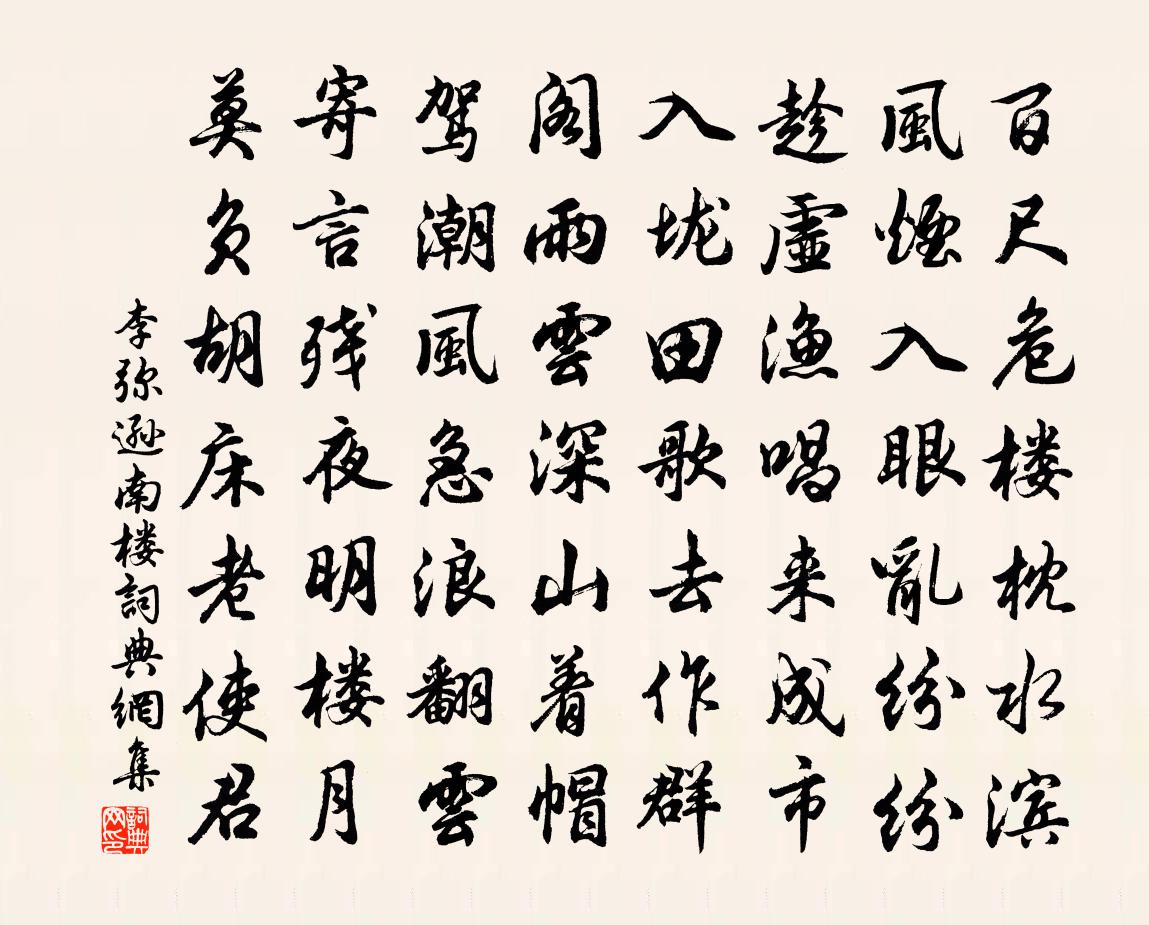 百尺危楼枕水滨
風煙入眼亂紛紛
趁虛漁唱来成市
入垅田歌去作群
阁雨雲深山着帽
驾潮風急浪翻雲
寄言残夜明楼月
莫负胡床老使君
李弥逊南楼詞典網集
詞典网印